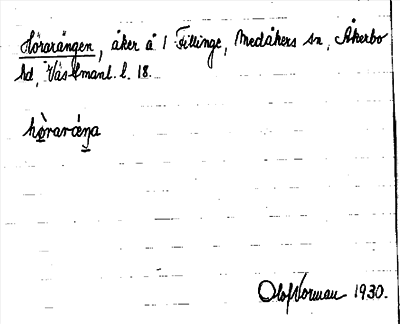 Hörarängen, åker å 1 Fillinge, Medåkers sn, Åkerbo
hd, Västmanl. l. 18.
hòraráŋa
Olof Norman 1930.